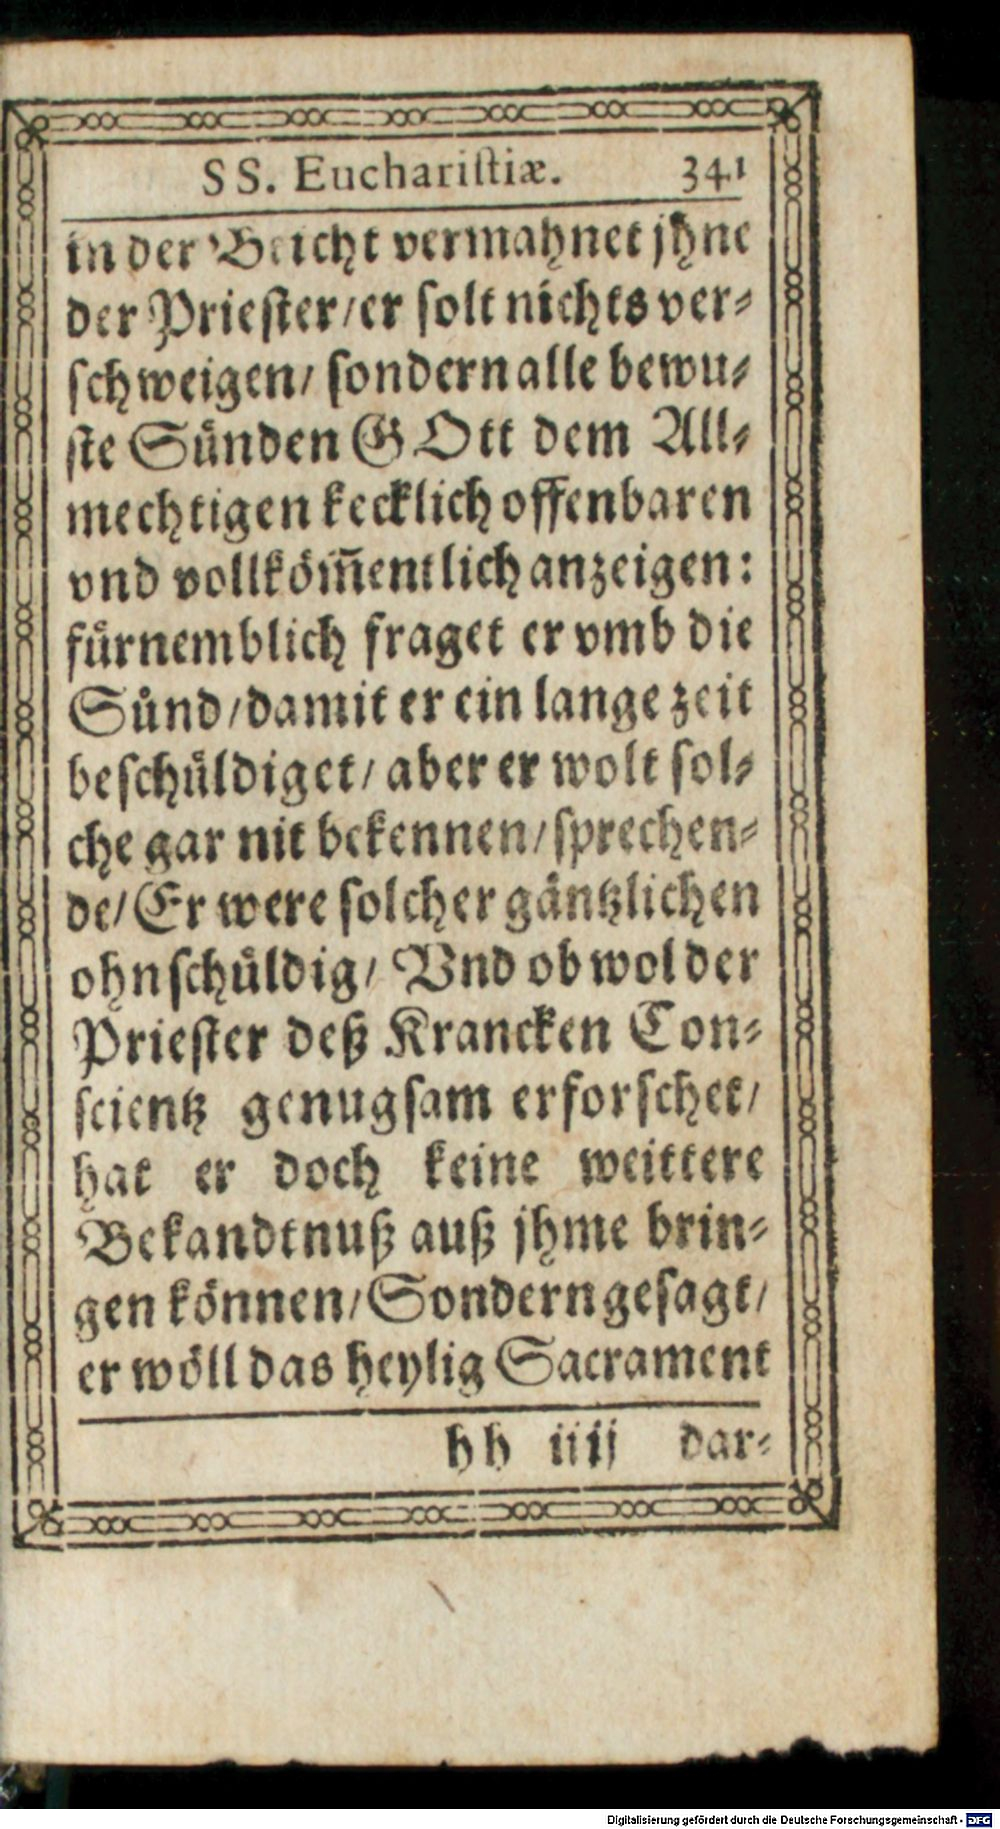 SS. Euchariſtiæ. 341
in der Beicht vermahnet jhne
der Prieſter/er ſolt nichts ver⸗
ſchweigen/ ſondern alle bewu⸗
ſte Suͤnden GOtt dem All⸗
mechtigen kecklich offenbaren
vnd vollkoͤm̃entlich anzeigen:
fuͤrnemblich fraget er vmb die
Suͤnd/damit er ein lange zeit
beſchuͤldiget/ aber er wolt ſol⸗
che gar nit bekennen/ſprechen⸗
de/Er were ſolcher gaͤntzlichen
ohnſchuͤldig/ Vnd ob wol der
Prieſter deß Krancken Con⸗
ſcientz genugſam erforſchet/
hat er doch keine weittere
Bekandtnuß auß jhme brin⸗
gen koͤnnen/Sondern geſagt/
er woͤll das heylig Sacrament
hh iiij dar⸗
Digitalisierung gefördert durch die Deutsche Forschungsgemeinschaft - DFG